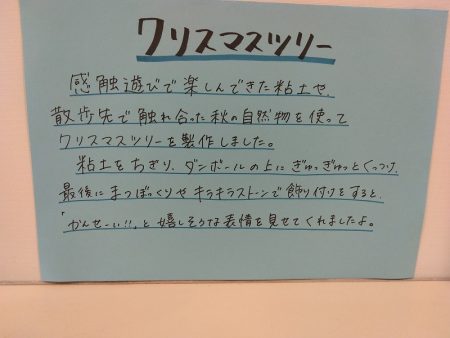 クリスマスツリー
感触遊びで楽しんできた粘土や、
散歩先で触れ合った秋の自然物を使って
クリスマスツリーを製作しました。
粘土をちぎり、ダンボールの上にぎゅっぎゅっとくっつけ、
最後にまつぼっくりやキラキラストーンで飾り付けをすると、
「かんせーい!!」と嬉しそうな表情を見せてくれましたよ。